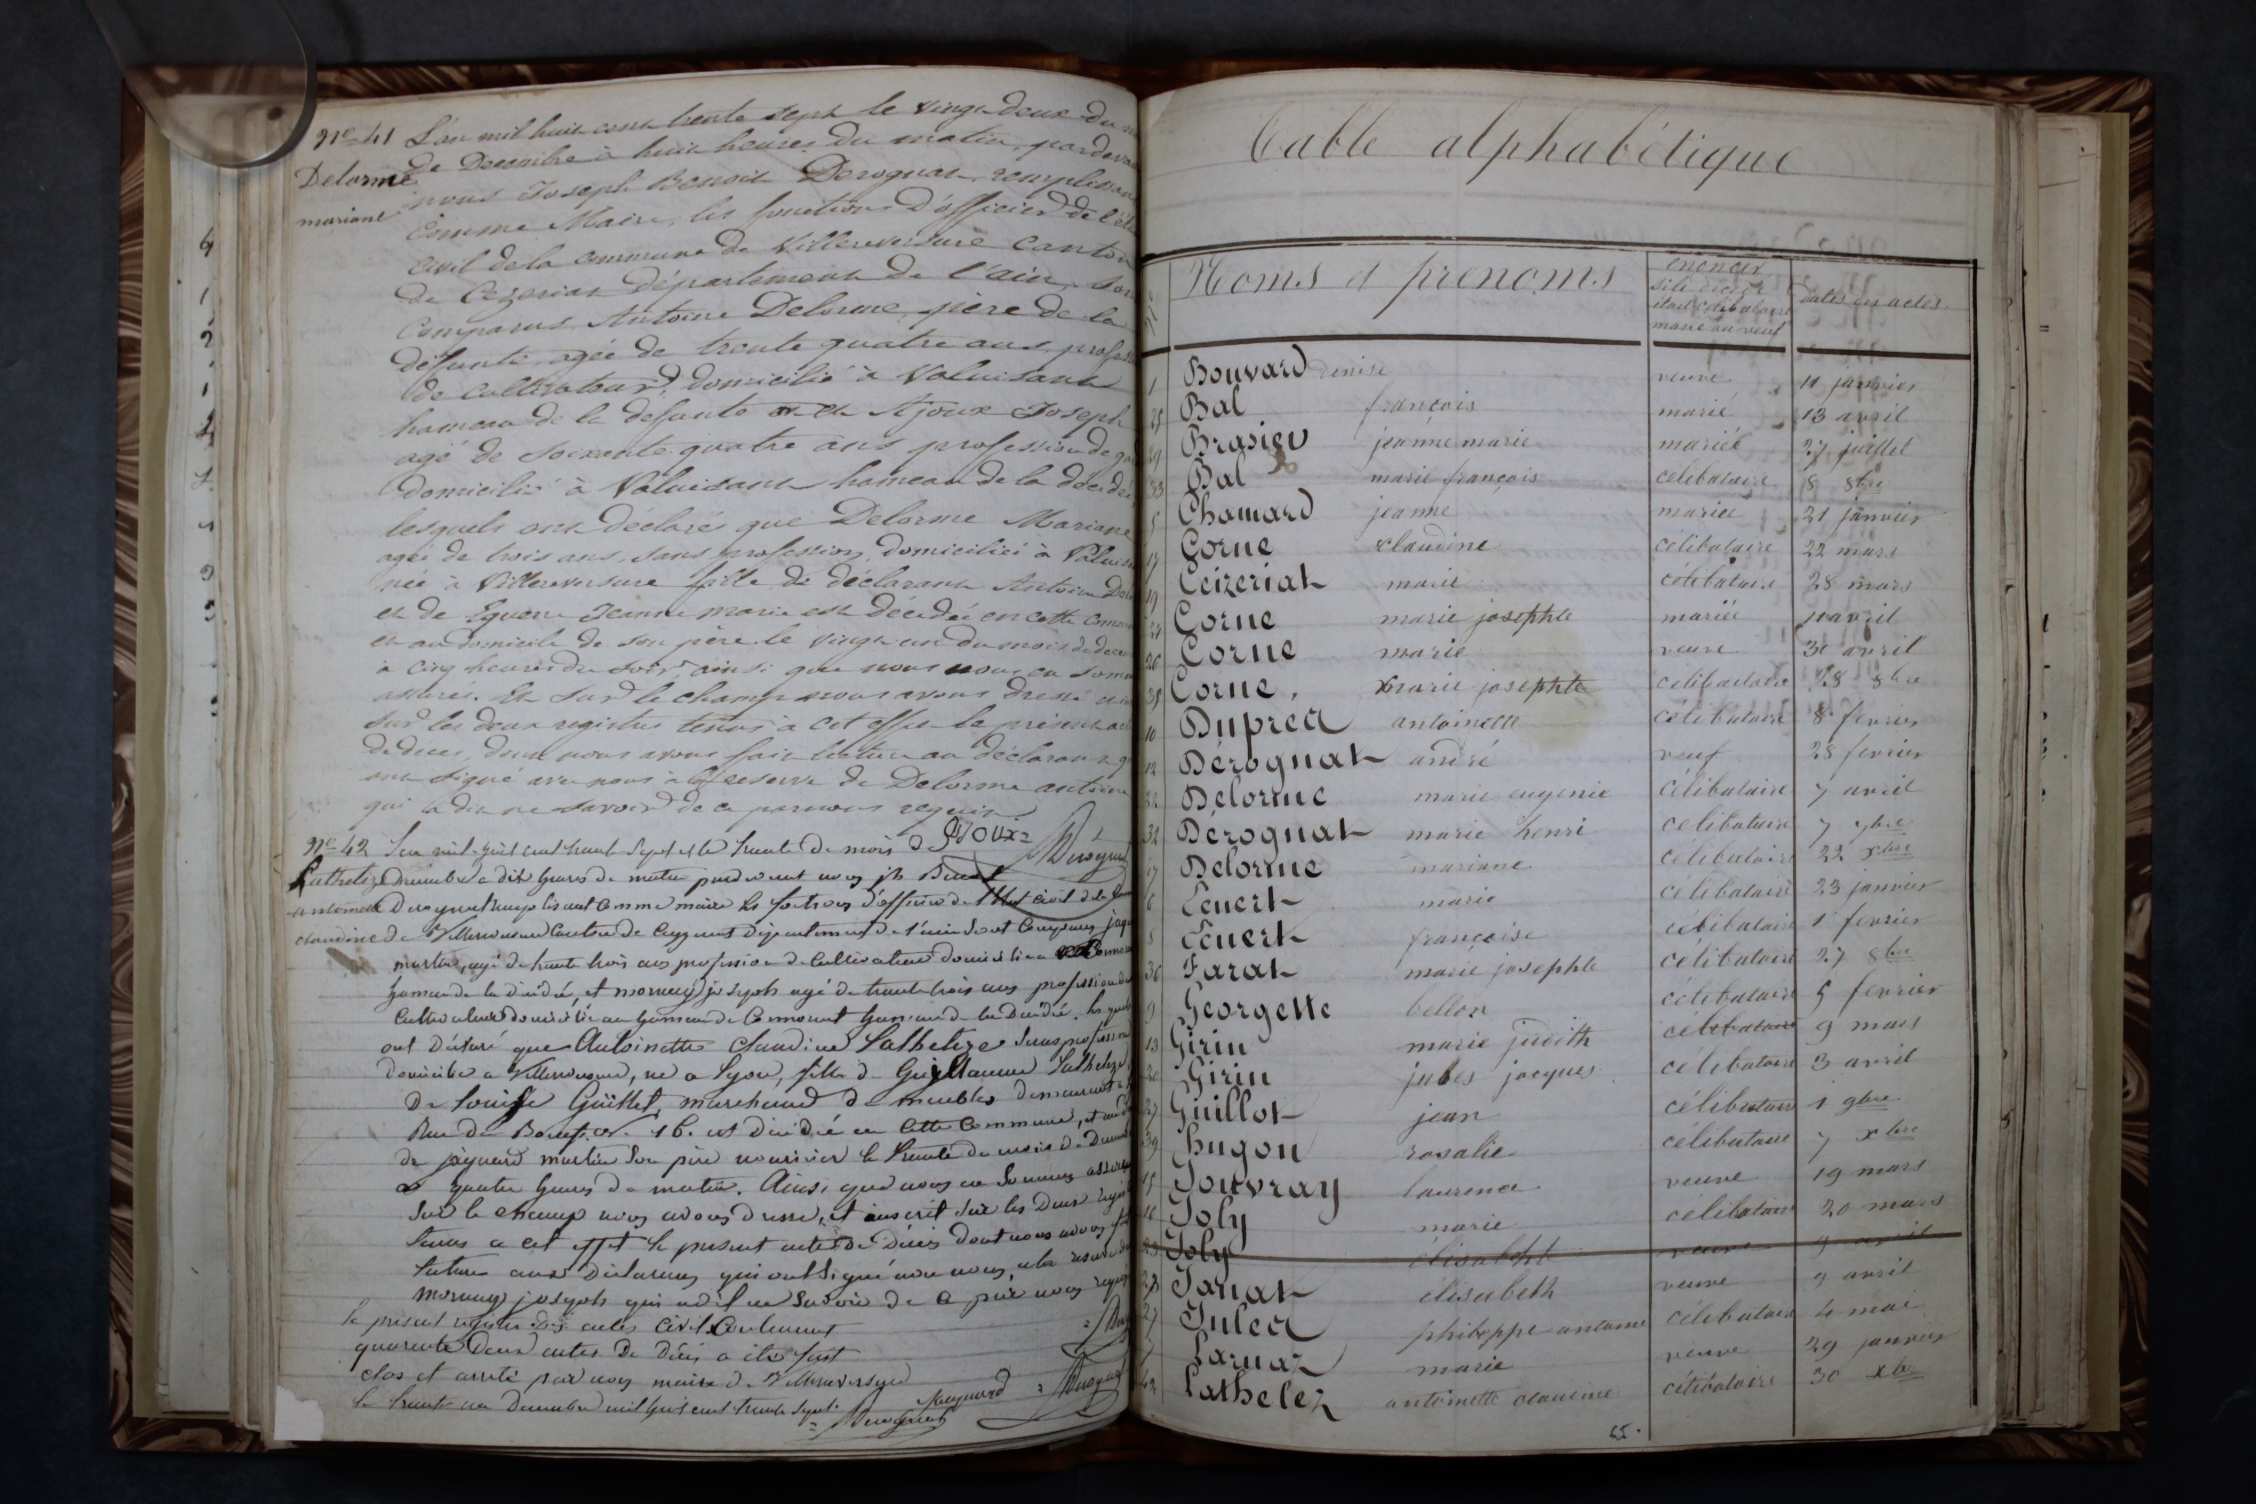 N° 41
Delorme
mariane
L'an mil huit cent trente sept le vingt deux du
de Decembre à huit heures du matin, pardevant
nous Joseph Benoit Derognat, remplissant
comme Maire, les fonctions d'officier de l'état
civil de la commune de Villereversure canton
de Ceyzeriat département de l'ain, sont
comparus Antoine Delorme, père de la
deffunte agée de trente quatre ans, profession
de cultivateur, domicilié à Valuisant
hameau de la defunte et Ajoux Joseph
agé de soixante quatre ans profession de
domicilié à Valuisant hameau de la décédée
lesquels ont déclaré que Delorme Mariane
agée de trois ans, sans profession, domiciliée à
née à Villereversure fille du déclarant Antoine
et de Jeanne marie est décédée en cette
et au domicile de son père le vingt un du mois de
à cinq heures du soir, ainsi que nous nous en sommes
assurés. Et sur le champ nous avons dressé
sur les deux registres tenus à cet effet le présent
de deces, dont nous avons fait lecture au déclarant
ont signé avec nous à la reserve de Delorme antoine
qui a dit ne savoir de ce par nous requis
AJOUX
N° 42
Lathelize
antoinette
claudine
L'an mil huit cent trente sept et le trente du mois de
décembre à dix heures du matin pardevant nous jh Benoit
Derognat remplissant comme maire les fonctions d'officier de l'état civil de la
de Villereversure Canton de Ceyzeriat département de l'ain sont Comparus
martin, agé de trente trois ans profession de Cultivateur domicilié a
hameau de la décédée, et mornay joseph agé de trente trois ans profession de
Cultivateur domicilié au hameau de hameau de la décédée. les quels
ont déclaré que Antoinette claudine Lathelize sans profession
domiciliée a Villereversure, née a Lyon, fille de Guillaume Lathelize
De Louise Guillet, marchand de meubles demeurant a
Rue du Boeuf n. 16. est décédée en cette Commune, et au
de martin son père nourricier le trente du mois de Decembre
a quatre heures du matin. Ainsi que nous nous en sommes assurés
sur le champ nous avons dressé, et inscrit sur les deux registres
tenus a cet effet le present acte de Décès dont nous avons fait
lecture aux Déclarants qui ont signé avec nous, a la reserve de
mornay joseph qui a dit ne savoir de ce par nous requis
le présent registre des actes Civil Contenant
quarante Deux actes de Décès a été fait
clos et arrété par nous maire de Villereversure
le trente un decembre mil huit cent trente sept.
Table alphabétique
Noms et prenoms
énoncer
si le décédé
était célibataire
marié ou veuf
dates des actes
1 Bouvard denise veuve 11 janvier
25 Bal françois marié 13 avril
29 Brasier jeanne marie mariée 27 juillet
33 Bal marie françois celibataire 8 8bre
5 Chamard jeanne mariée 21 janvier
17 Corne claudine célibataire 22 mars
19 Ceizeriat marie célibataire 28 mars
Corne marie josephte mariée 10 avril
26 Corne marie veuve 30 avril
35 Corne, marie josephte celibataire 28 8bre
10 Dupred antoinette célibataire 8 fevrier
12 Dérognat andré veuf 28 fevrier
22 Delorme marie eugenie célibataire 7 avril
32 Dérognat marie henri celibataire 7 7bre
Delorme mariane célibataire 22 xbre
6 Ecuert marie célibataire 23 janvier
8 Ecuert françoise célibataire 1 fevrier
36 Farat marie josephte célibataire 27 8bre
9 Georgette bellon célibataire 5 fevrier
13 Girin marie judith célibataire 9 mars
20 Girin jules jacques célibataire 3 avril
37 Guillot jean célibataire 1 9bre
39 hugon rosalie célibataire 7 xbre
15 Jouvray laurence veuve 19 mars
16 Joly marie célibataire 20 mars
23 Joly élisabeht veuve 9 avril
Janat élisabeth veuve 9 avril
27 Juled philippe antoine célibataire 4 mai
7 Larnaz marie veuve 29 janvier
42 Lathelez antoinette claudine célibataire 30 xbre